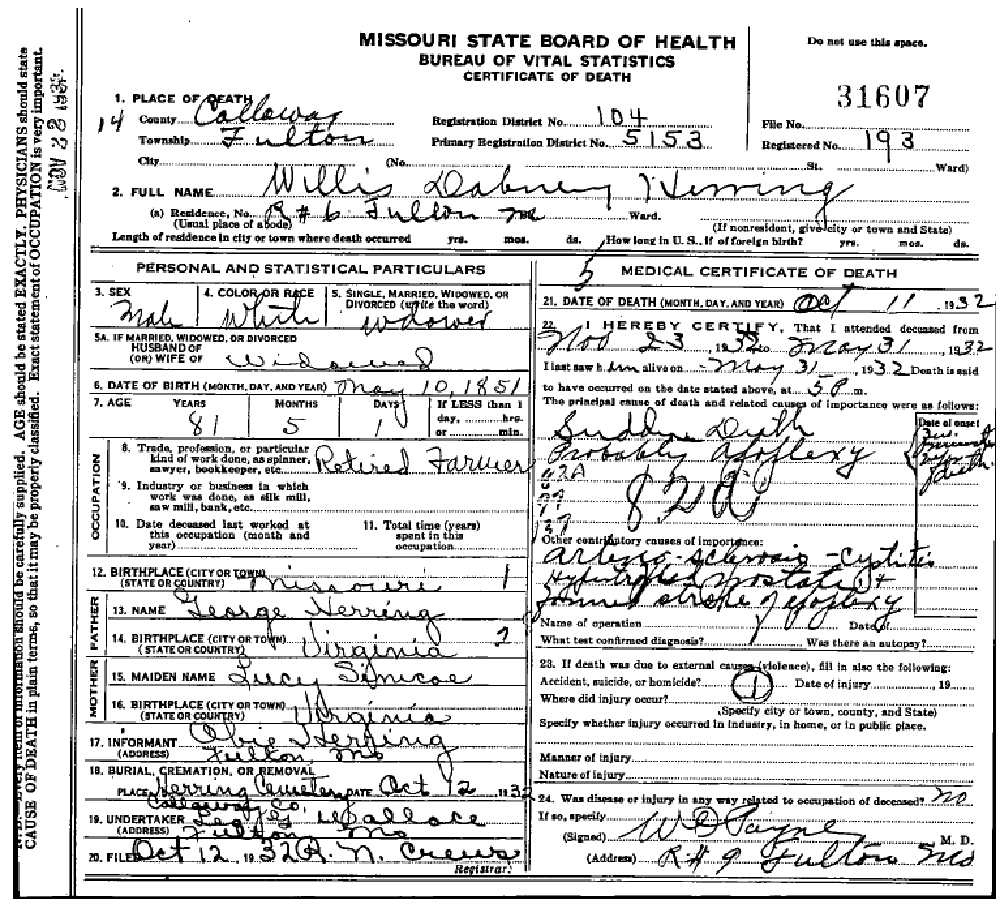 MISSOURI STATE BOARD OF HEALTH
BUREAU OF VITAL STATISTICS
CERTIFICATE OF DEATH
Do not use this space.
31607
1. PLACE OF DEATH
14 County Callaway Registration District No. 104 File No.
Township Fulton Primary Registration District No. 5153 Registered No. 193
City (No. St. Ward)
2. FULL NAME Willis Dabney Herring
(a) Residence, No. R # 6 Fulton Mo Ward.
(Usual place of abode) (If nonresident, give city or town and State)
Length of residence in city or town where death occurred yrs. mos. ds. How long in U. S., if of foreign birth? yrs. mos. ds.
PERSONAL AND STATISTICAL PARTICULARS
3. SEX Male
4. COLOR OR RACE White
5. SINGLE, MARRIED, WIDOWED, OR DIVORCED (write the word) widower
5A. IF MARRIED, WIDOWED, OR DIVORCED
HUSBAND OF
(OR) WIFE OF Widowed
6. DATE OF BIRTH (MONTH, DAY, AND YEAR) May 10, 1851
7. AGE YEARS MONTHS DAYS If LESS than 1
day, hrs.
or min.
81 5 1
OCCUPATION
8. Trade, profession, or particular
kind of work done, as spinner,
sawyer, bookkeeper, etc. Retired Farmer
9. Industry or business in which
work was done, as silk mill,
saw mill, bank, etc.
10. Date deceased last worked at
this occupation (month and
year)
11. Total time (years)
spent in this
occupation
12. BIRTHPLACE (CITY OR TOWN)
(STATE OR COUNTRY) Missouri 1
FATHER
13. NAME George Herring
14. BIRTHPLACE (CITY OR TOWN)
(STATE OR COUNTRY) Virginia
MOTHER
15. MAIDEN NAME Lucy Simcoe
16. BIRTHPLACE (CITY OR TOWN)
(STATE OR COUNTRY) Virginia
17. INFORMANT Obie Herring
(ADDRESS) Fulton Mo
18. BURIAL, CREMATION, OR REMOVAL
PLACE Herring Cemetery DATE Oct 12, 1932
Callaway Co.
19. UNDERTAKER Wallace
(ADDRESS) Fulton Mo
20. FILED Oct 12, 1932 R. N. Crews
Registrar.
5 MEDICAL CERTIFICATE OF DEATH
21. DATE OF DEATH (MONTH, DAY, AND YEAR) Oct 11, 1932
22. I HEREBY CERTIFY, That I attended deceased from
Nov 23 1932 to May 31, 1932
I last saw him alive on May 31, 1932 Death is said
to have occurred on the date stated above, at 5 P m.
The principal cause of death and related causes of importance were as follows:
Date of onset
Sudden Death
Probably Apoplexy
82A
Other contributory causes of importance:
Arterio-sclerosis - Cystitis
Hypertrophied Prostate +
former stroke of apoplexy
Name of operation Date of
What test confirmed diagnosis? Was there an autopsy?
23. If death was due to external causes (violence), fill in also the following:
Accident, suicide, or homicide? 1 Date of injury , 19
Where did injury occur?
(Specify city or town, county, and State)
Specify whether injury occurred in industry, in home, or in public place.
Manner of injury
Nature of injury
24. Was disease or injury in any way related to occupation of deceased? no
If so, specify
(Signed) W D Payne M. D.
(Address) R # 9 Fulton Mo
NOV 22 1932
Every item of information should be carefully supplied. AGE should be stated EXACTLY. PHYSICIANS should state
CAUSE OF DEATH in plain terms, so that it may be properly classified. Exact statement of OCCUPATION is very important.